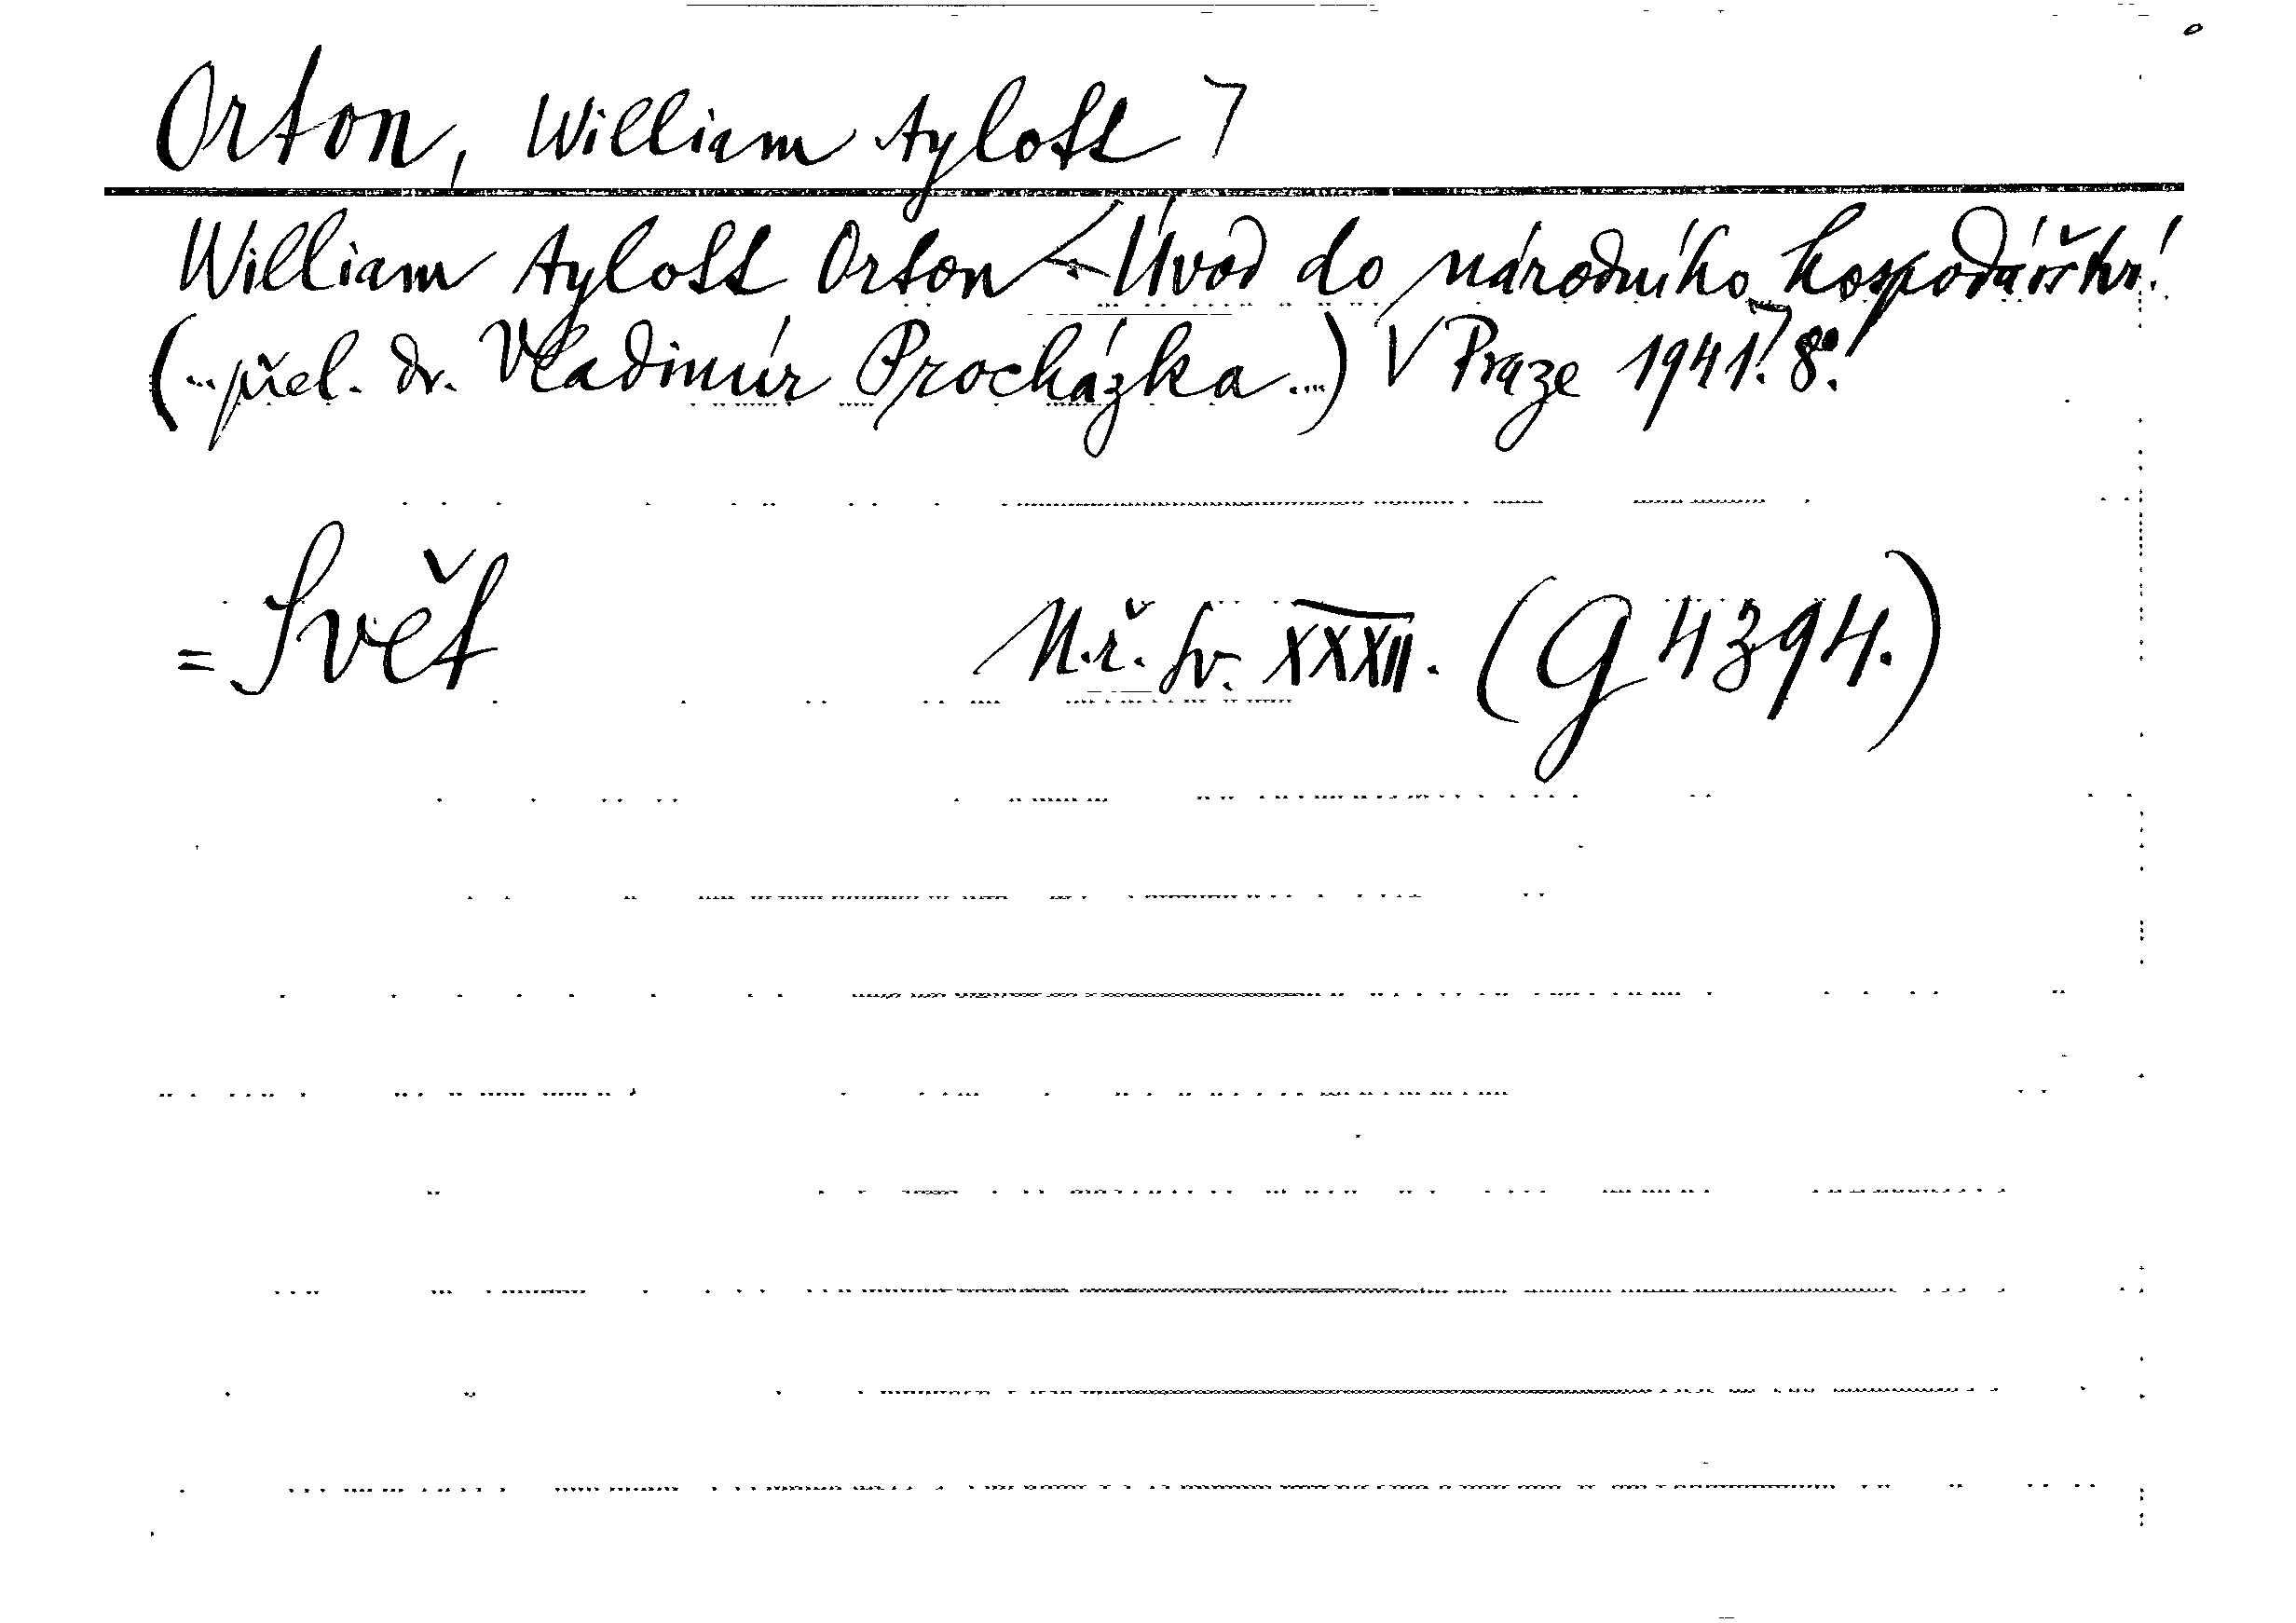 Orton, William Aylott
William Aylott Orton: Úvod do národního hospodářství.
(...přel. dr. Vladimír Procházka...) V Praze 1941. 8°.
= Svět N.ř. sv. XXXII. (G 4394.)